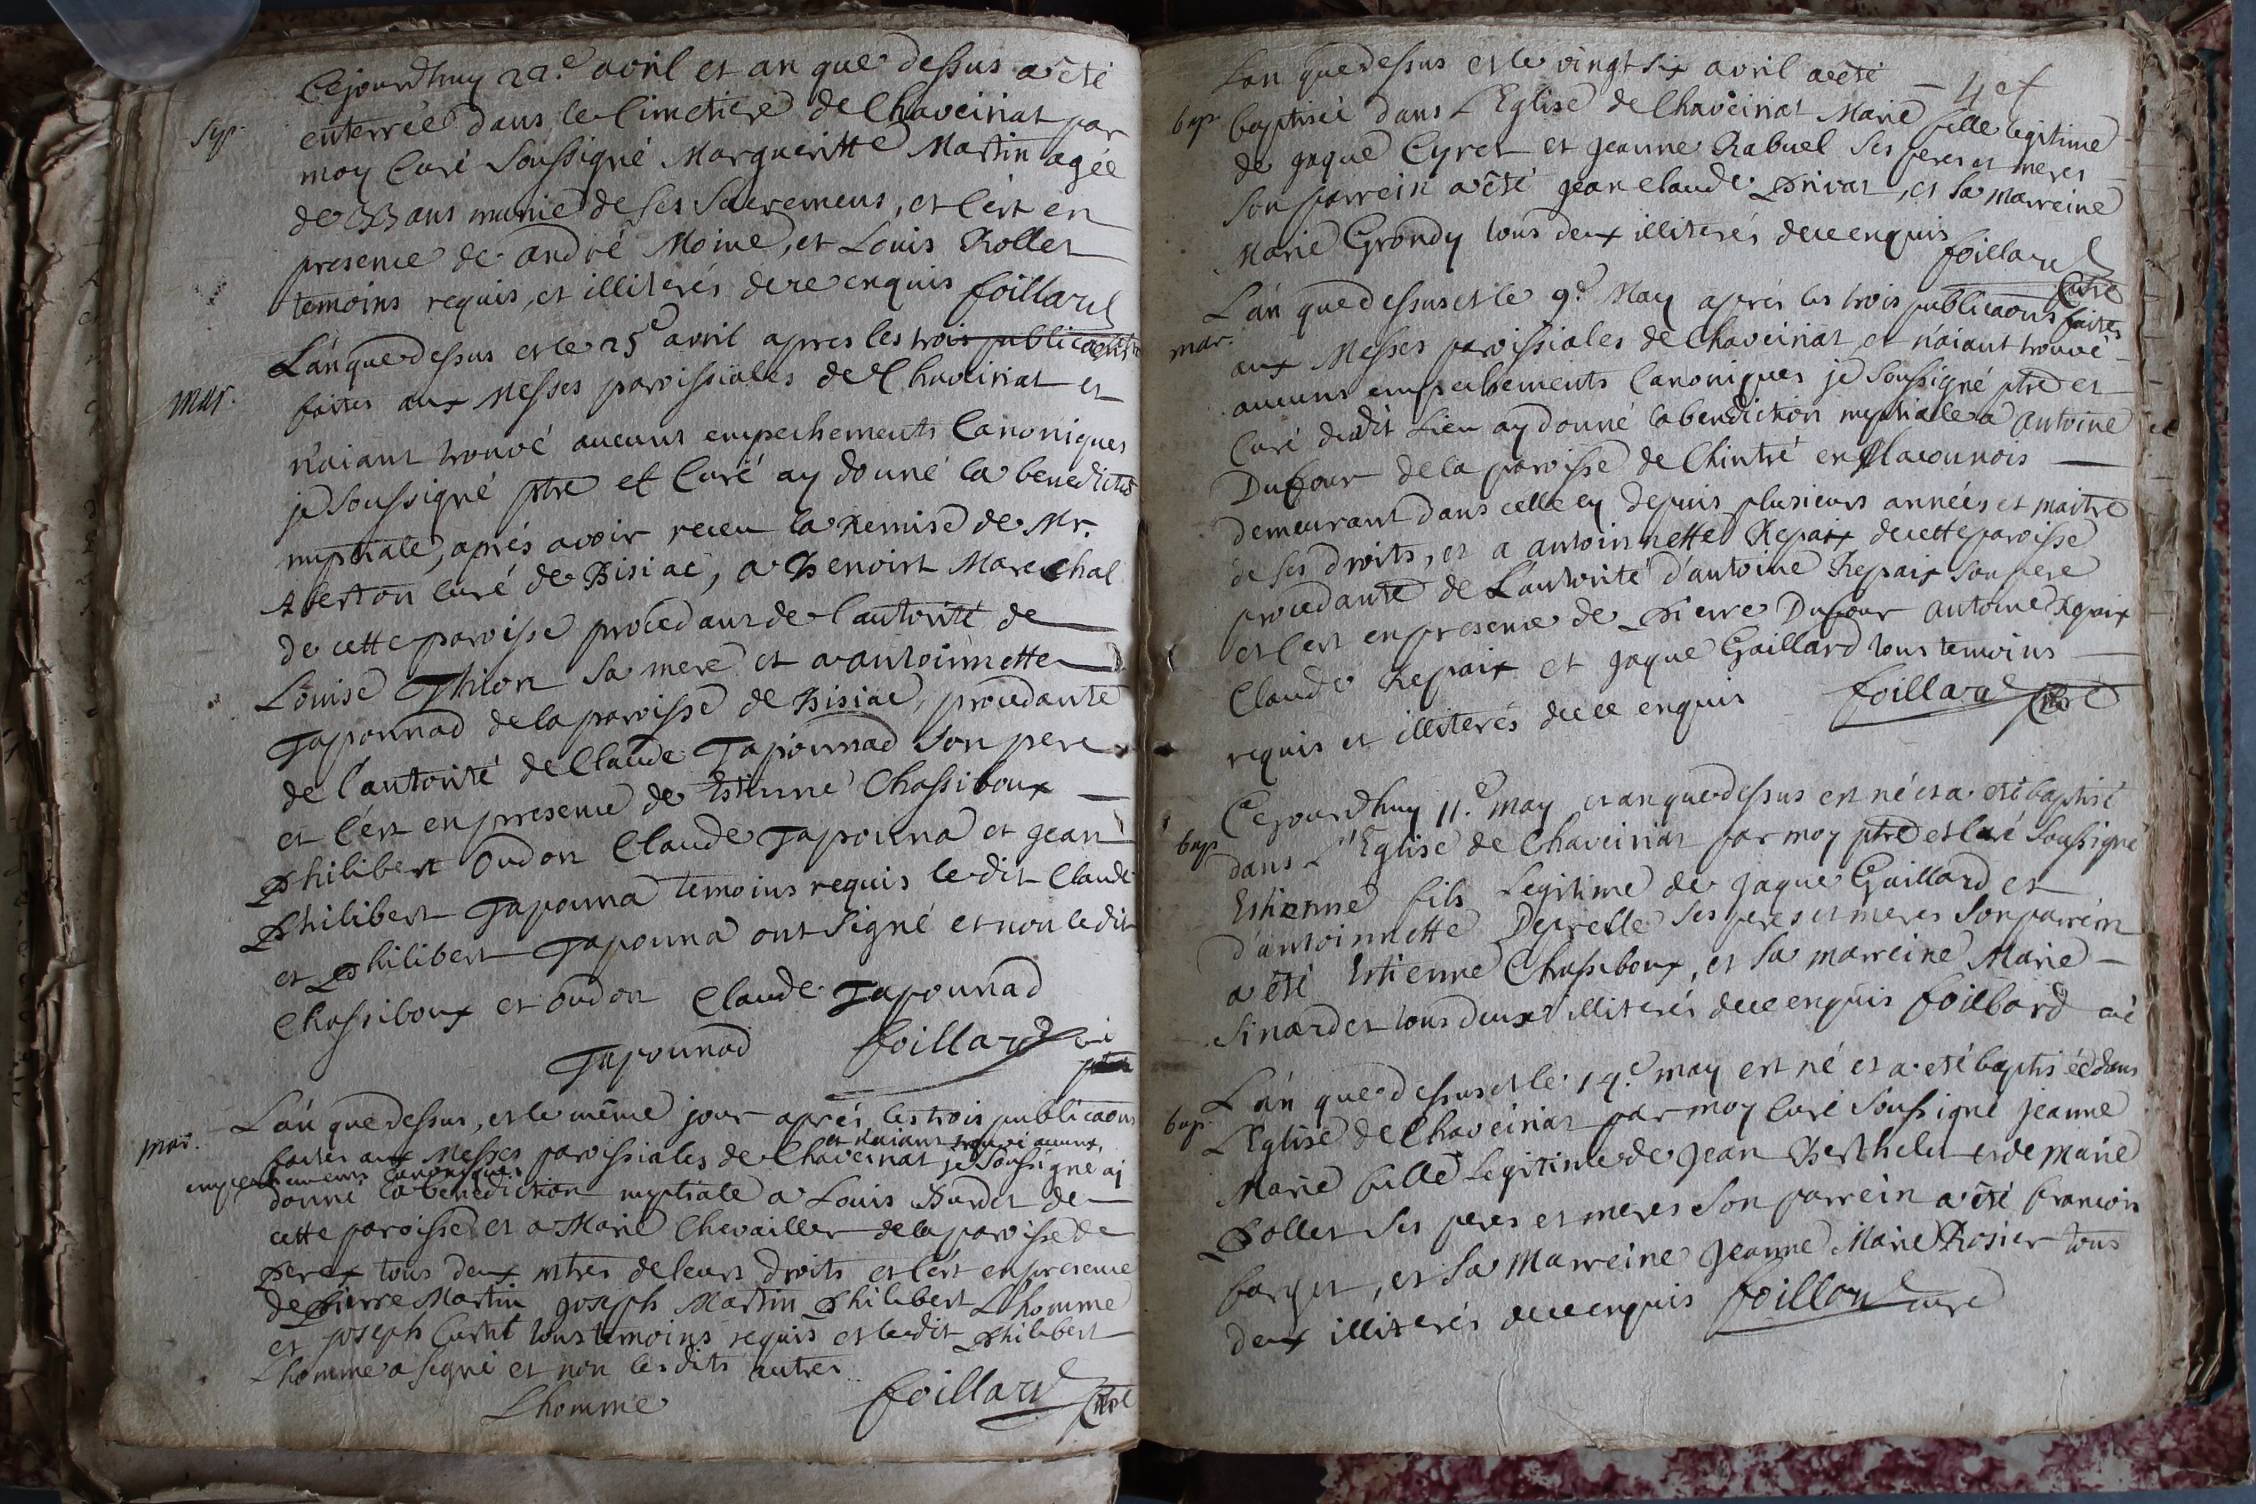 Cejourdhuy 22.e avril et an que dessus a été
Sep. enterrée dans le Cimetiere de Chaveiriat par
moy Curé Soussigné Margueritte Martin agée
de 33 ans munie de ses Sacremens, et c'ést en
presence de andré Moine, et Louis Rollet
temoins requis, et illiterés de ce enquis foillard
L'an que dessus et le 25e avril apres les trois publicaons
mar. faites aux Messes paroissiales de Chaveiriat et
n'aiant trouvé aucuns empechements Canoniques
je Soussigné ptre et Curé ay donné la benediction
nuptiale, aprés avoir receu la Remise de Mr.
Curé de Bisiac, a Benoist Marechal
de cette paroisse procedant de l'autorité de
Louise Thion Sa mere et a antoinnette
Tapounad de la paroisse de Bisiac, procedante
de l'autorité de Claude Tapounad Son pere
et c'ést en presence de Estienne Chassiboux
Philibert Oudon Claude Tapouna et Jean
Philibert Tapouna temoins requis le dit Claude
et Philibert Tapouna ont Signé et non le dit
Chassiboux et oudon Claude Tapounad
Tapounad foillard
L'an que dessus, et le même jour aprés les trois publicaons
mar. faites aux Messes paroissiales de Chaveiriat et n'aiant trouvé aucuns
empechemens Canoniques je Soussigné ai
donné la benediction nuptiale a Louis Burdet de
cette paroisse et a Marie Chevailler de la paroisse de
Perex tous deux mtres de leurs droits et c'ést en presence
de Pierre Martin Joseph Martin Philibert Lhomme
et Joseph Curtil tous temoins requis et le dit Philibert
Lhomme a signé et non les dits autres
Lhomme foillard Curé
L'an que dessus et le vingt six avril a été
bap. baptisée dans L'Eglise de Chaveiriat Marie fille legitime
de Jaque Eyret et Jeanne Rabuel Ses peres et meres
Son parrein a été Jean Claude Privat, et Sa marreine
Marie Grondy tous deux illiterés de ce enquis
foillard Curé
L'an que dessus et le 9.e May aprés les trois publicaons faites
mar. aux Messes paroissiales de Chaveiriat et n'aiant trouvé
aucuns empechements Canoniques je Soussigné ptre et
Curé dudit Lieu ay donné la benediction nuptiale a Antoine
Dufour de la paroisse de Chintré en Maconnois
demeurant dans celle cy depuis plusieurs années et maitre
de ses droits, et a antoinnette Repaix de cette paroisse
procedante de L'autorité d'antoine Repaix Son pere
et c'ést en presence de Pierre Dufour antoine Repaix
Claude Repaix et Jaque Gaillard tous temoins
requis et illiterés de ce enquis foillard Curé
Cejourdhuy 11.e may et an que dessus est né et a été baptisé
bap. dans L'Eglise de Chaveiriat par moy ptre et Curé Soussigné
Estienne fils Legitime de Jaque Gaillard et
d'antoinnette Deprelle Ses peres et meres Son parrein
a été Estienne Chassiboux, et Sa marreine Marie
Sinardet tous deux illiterés de ce enquis foillard cé
L'an que dessus et le 14.e may est né et a été baptisée dans
bap. L'Eglise de Chaveiriat par moy Curé Soussigné Jeanne
Marie fille Legitime de Jean Berthelet et de Marie
Pollet Ses peres et meres Son parrein a été francois
farget, et Sa Marreine Jeanne Marie Rosier tous
deux illiterés de ce enquis foillard curé